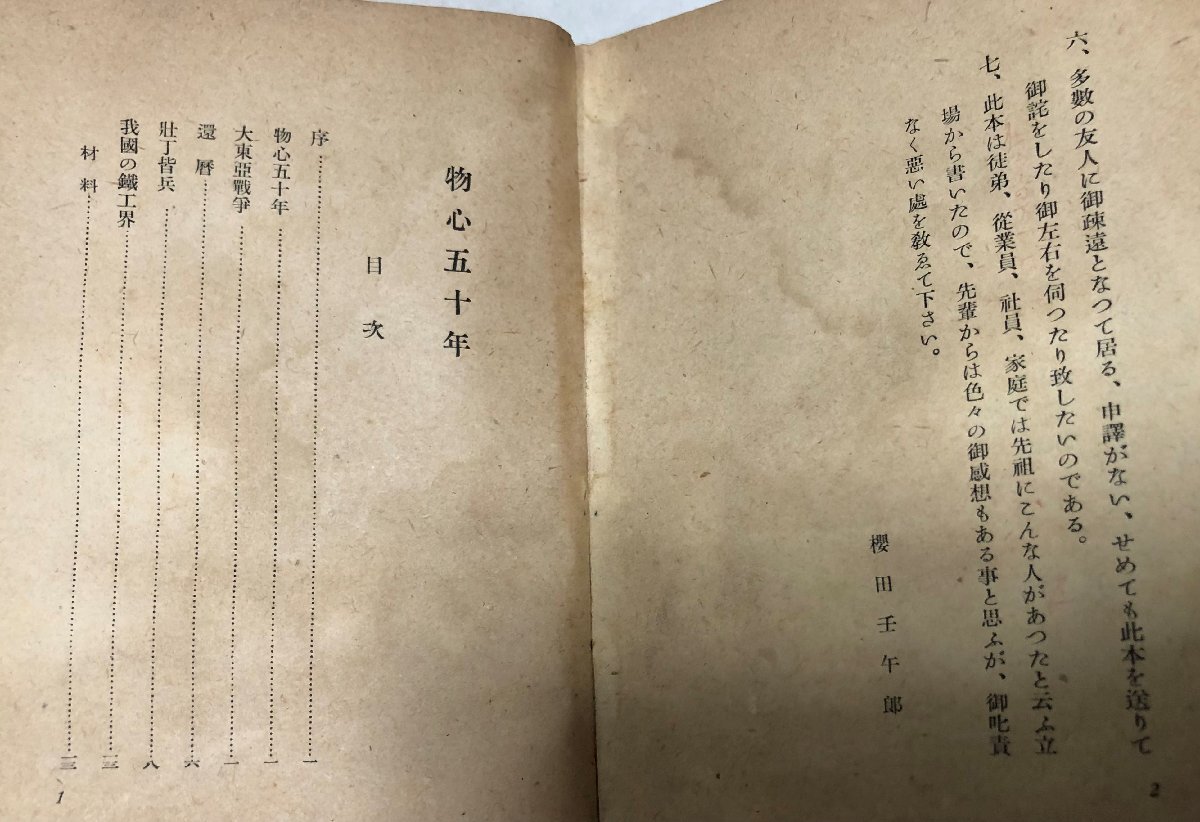 六、多數の友人に御疎遠となつて居る、申譯がない、せめても此本を送りて
御詫をしたり御左右を伺つたり致したいのである。
七、此本は徒弟、從業員、社員、家庭では先祖にこんな人があつたと云ふ立
場から書いたので、先輩からは色々の御感想もある事と思ふが、御叱責
なく惡い處を敎ゑて下さい。
櫻田壬午郎
2
物心五十年
目次
序……一
物心五十年……一
大東亞戰爭……一
還曆……六
壯丁皆兵……八
我國の鐵工界……
材料……
1